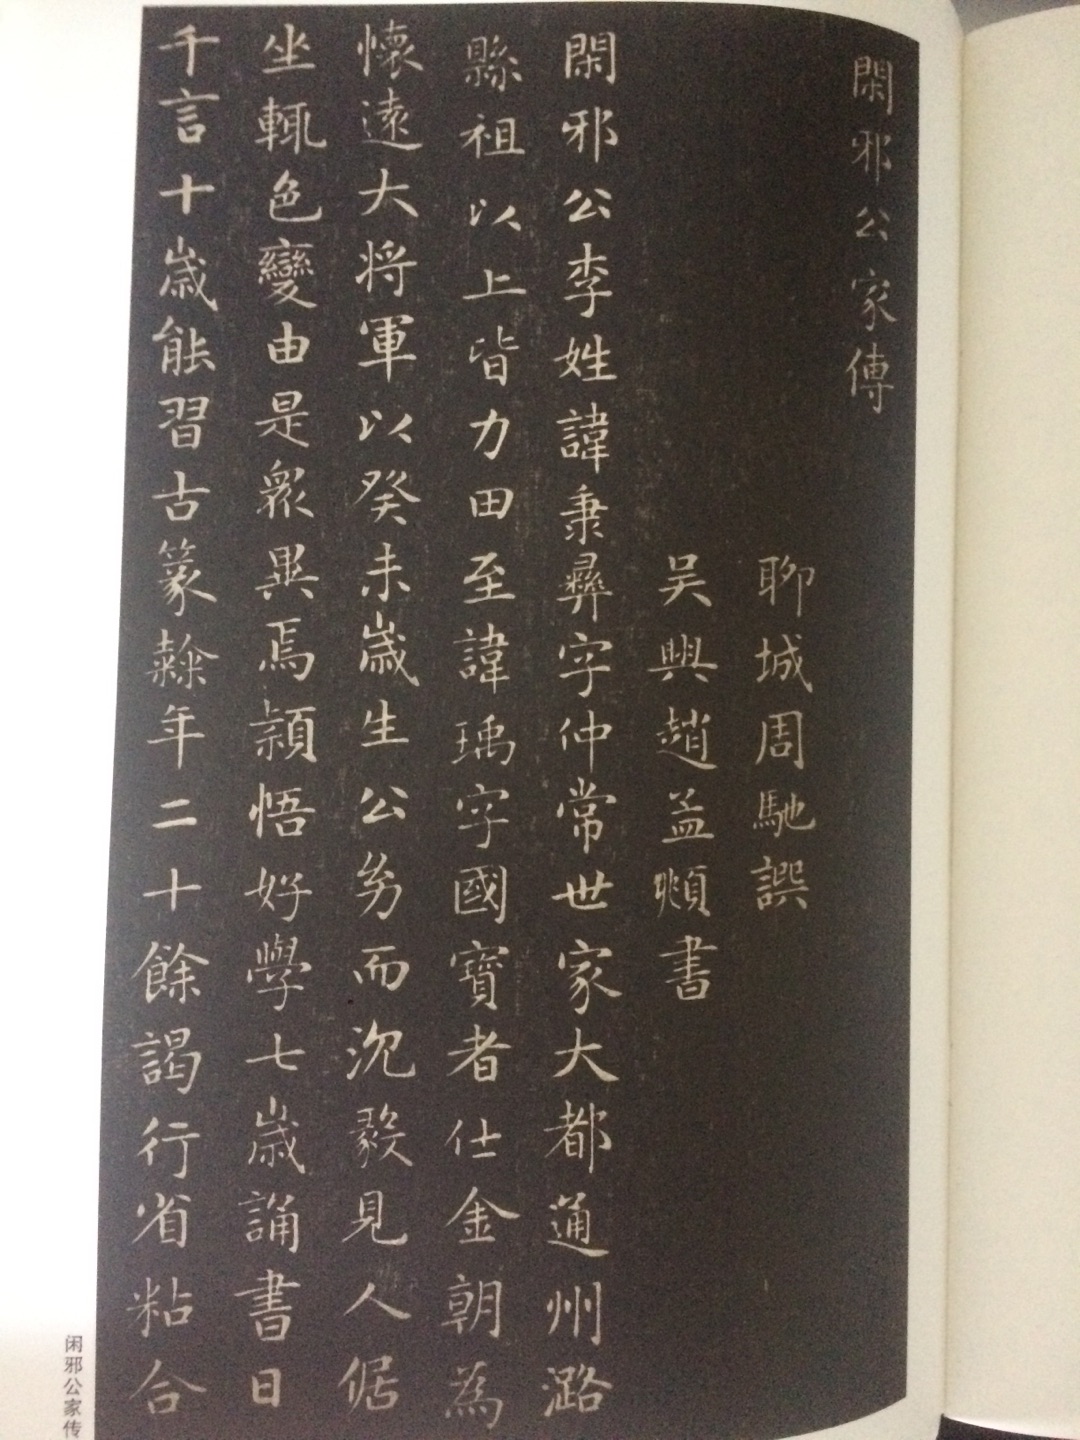 閑邪公家傳
聊城周馳譔
吴興趙孟頫書
閑邪公李姓諱秉彝字仲常世家大都通州潞
縣祖以上皆力田至諱瑀字國寶者仕金朝為
懷遠大將軍以癸未歲生公幼而沉毅見人倨
坐輒色變由是衆異焉穎悟好學七歲誦書日
千言十歲能習古篆隸年二十餘謁行省粘合
闲邪公家传